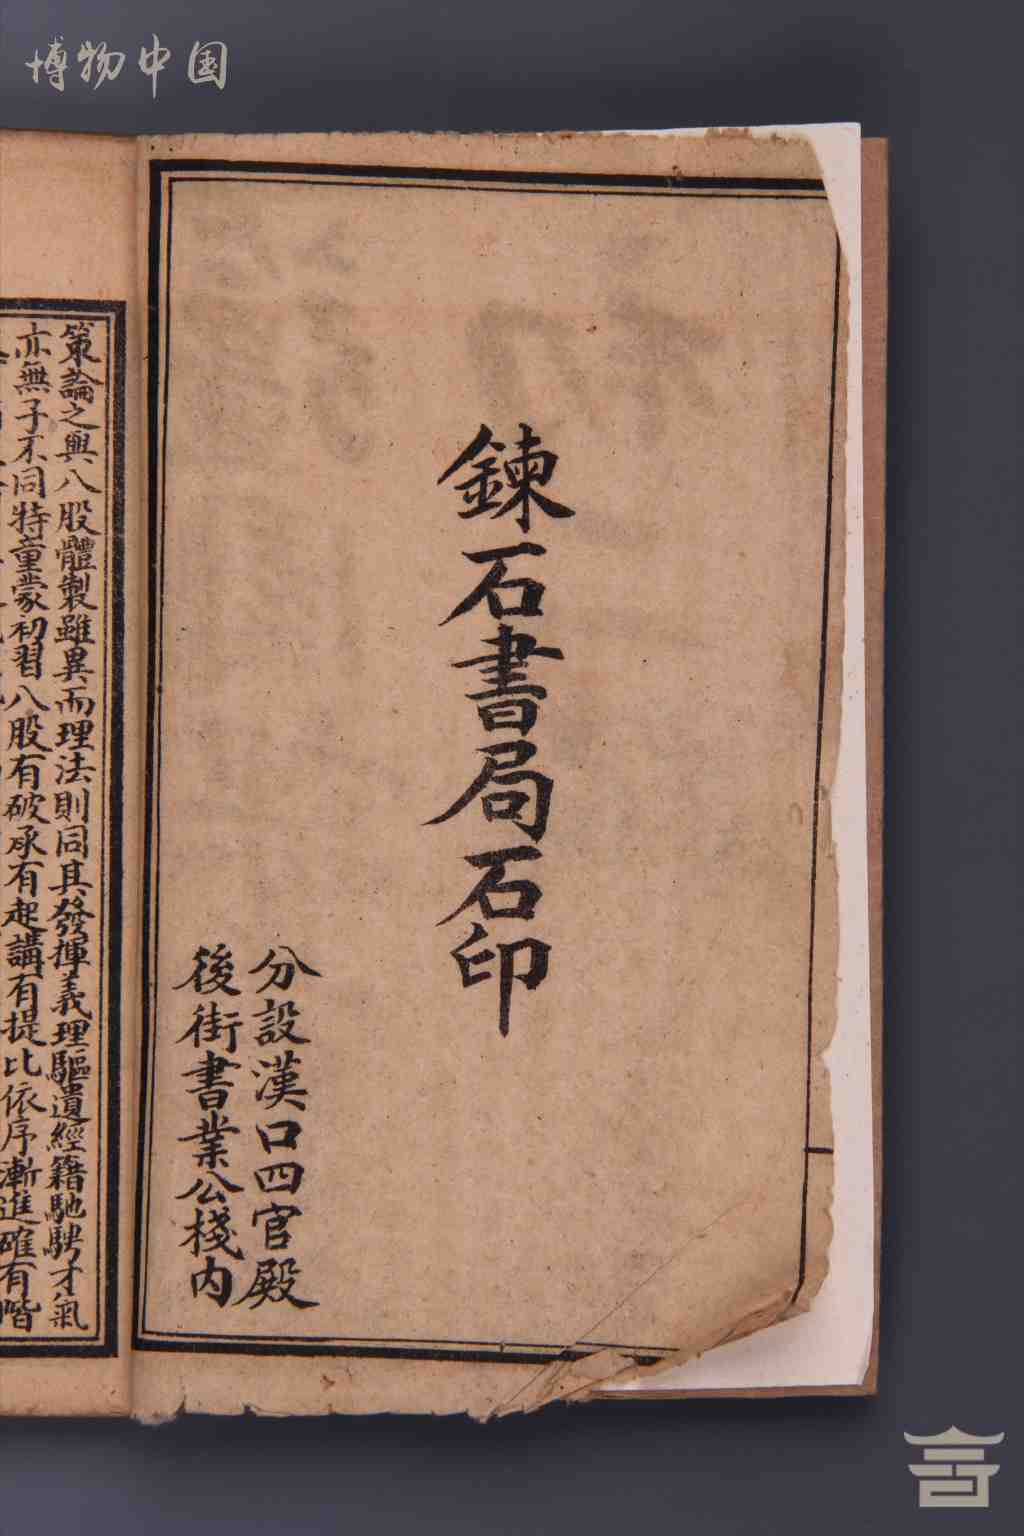 博物中国
鍊石書局石印
分設漢口四官殿
後街書業公棧内
策論之與八股體製雖異而理法則同其發揮義理驅遺經籍馳騁才氣
亦無子不同特童蒙初習八股有破承有起講有提比依序漸進確有階